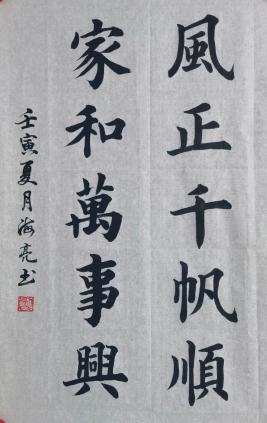 風正千帆順
家和萬事興
壬寅夏月海亮书